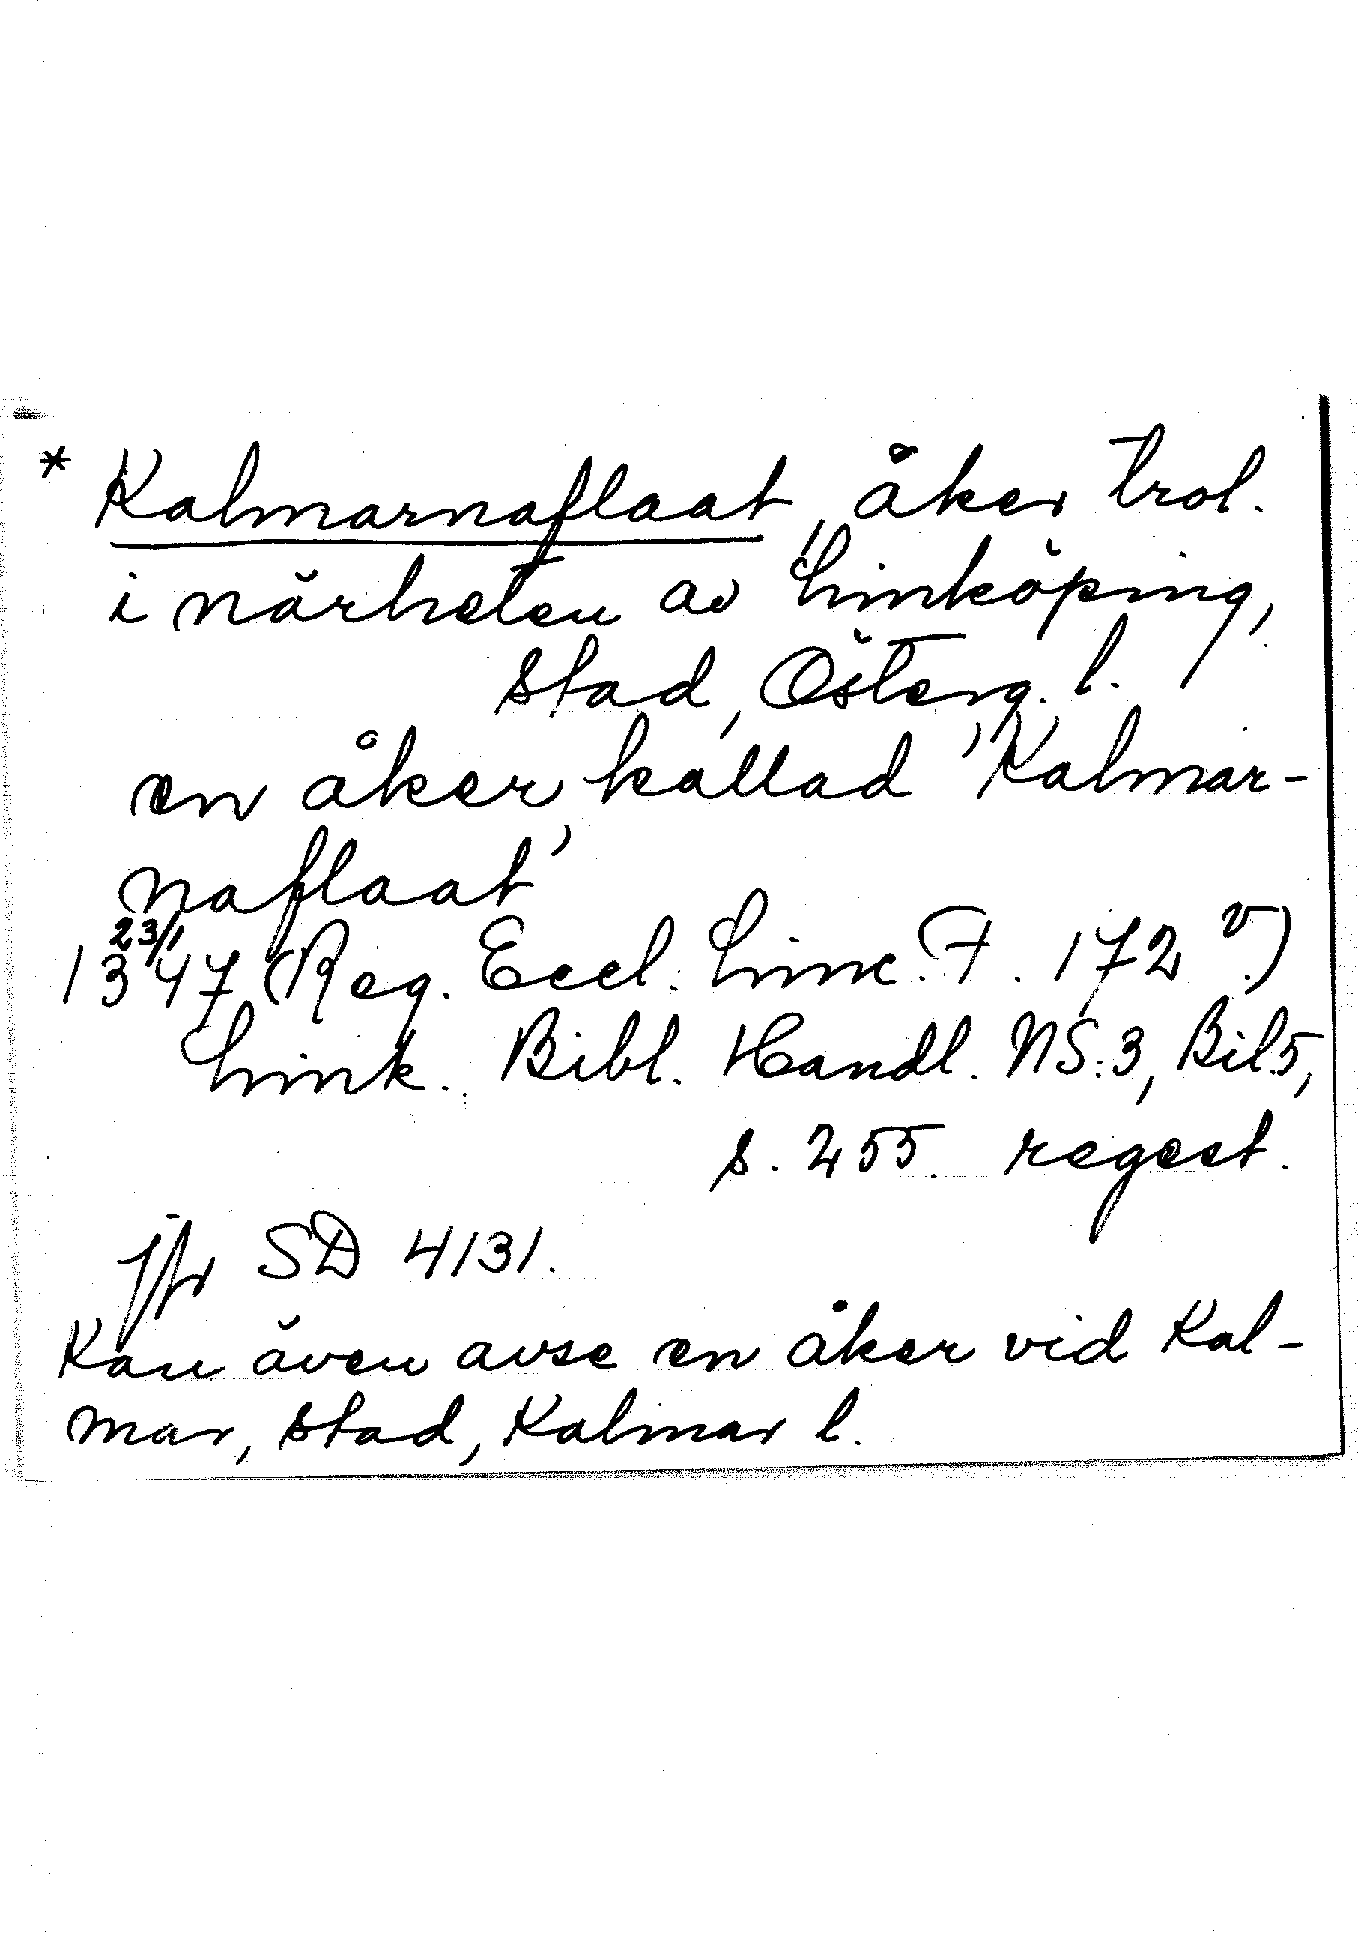 * Kalmarnaflaat, åker trol.
i närheten av Linköping,
stad, Österg. l.
en åker, kallad "Kalmar-
naflaat'
23/1
1347 (Reg. Eccl. Linc. F. 172 v.)
Link. Bibl. Handl. NS:3, Bil 5,
s. 255. regest.
jfr SD 4131.
Kan även avse en åker vid Kal-
mar, stad, Kalmar l.